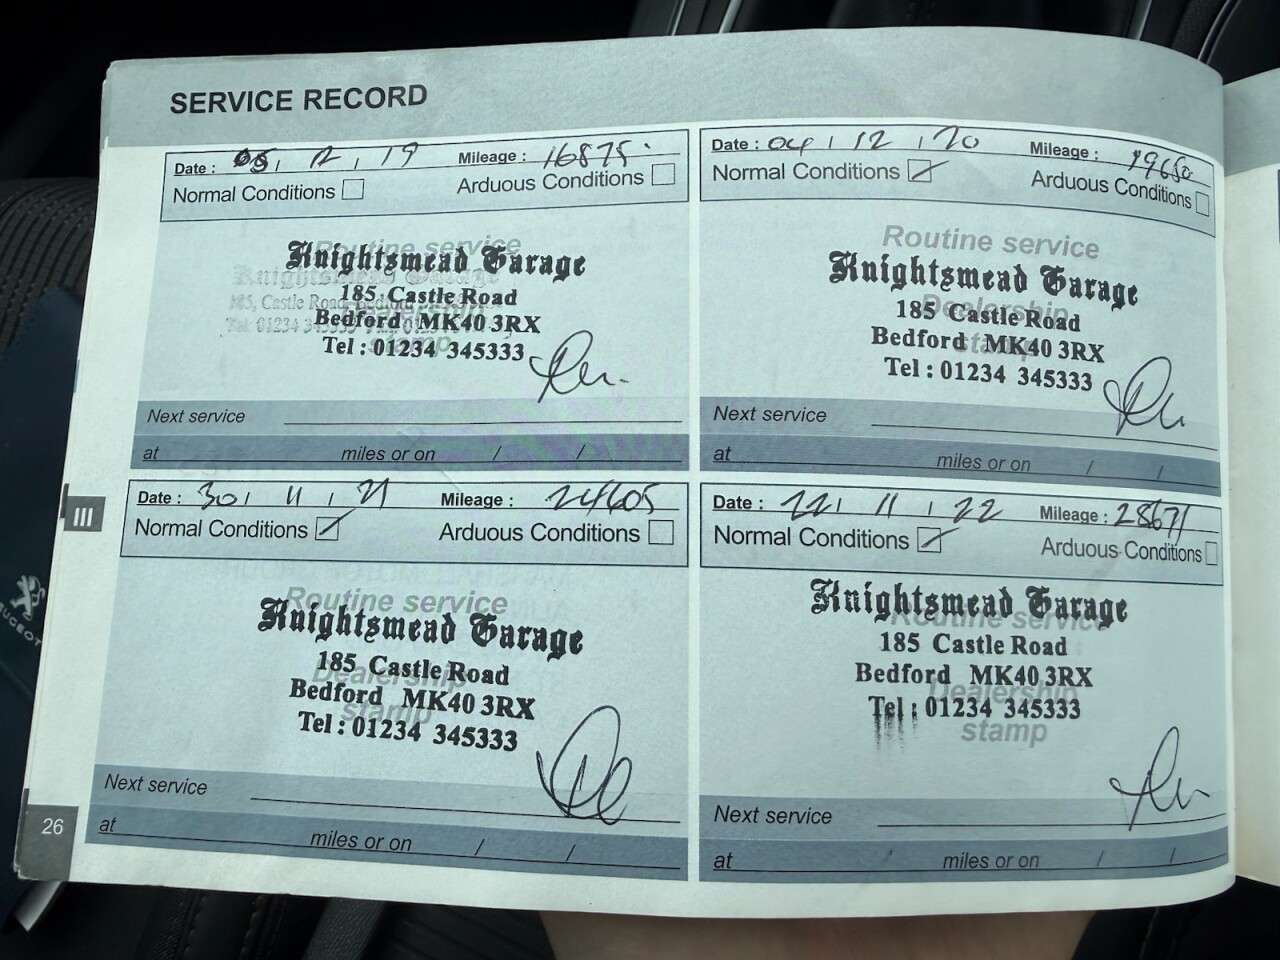 SERVICE RECORD
Date : 05 / 12 / 19 Mileage : 16875
Normal Conditions Arduous Conditions
Routine service
Knightsmead Garage
185, Castle Road
Bedford MK40 3RX
Tel : 01234 345333
Next service
at miles or on / /
Date : 04 / 12 / 20 Mileage : 19650
Normal Conditions Arduous Conditions
Routine service
Knightsmead Garage
Dealership
185 Castle Road
Bedford MK40 3RX
stamp
Tel : 01234 345333
Next service
at miles or on / /
Date : 30 / 11 / 21 Mileage : 24605
Normal Conditions Arduous Conditions
Routine service
Knightsmead Garage
185 Castle Road
Dealership
Bedford MK40 3RX
stamp
Tel : 01234 345333
Next service
at miles or on / /
Date : 22 / 11 / 22 Mileage : 28671
Normal Conditions Arduous Conditions
Knightsmead Garage
Routine service
185 Castle Road
Bedford MK40 3RX
Dealership
Tel : 01234 345333
stamp
Next service
at miles or on / /
III
26
PEUGEOT